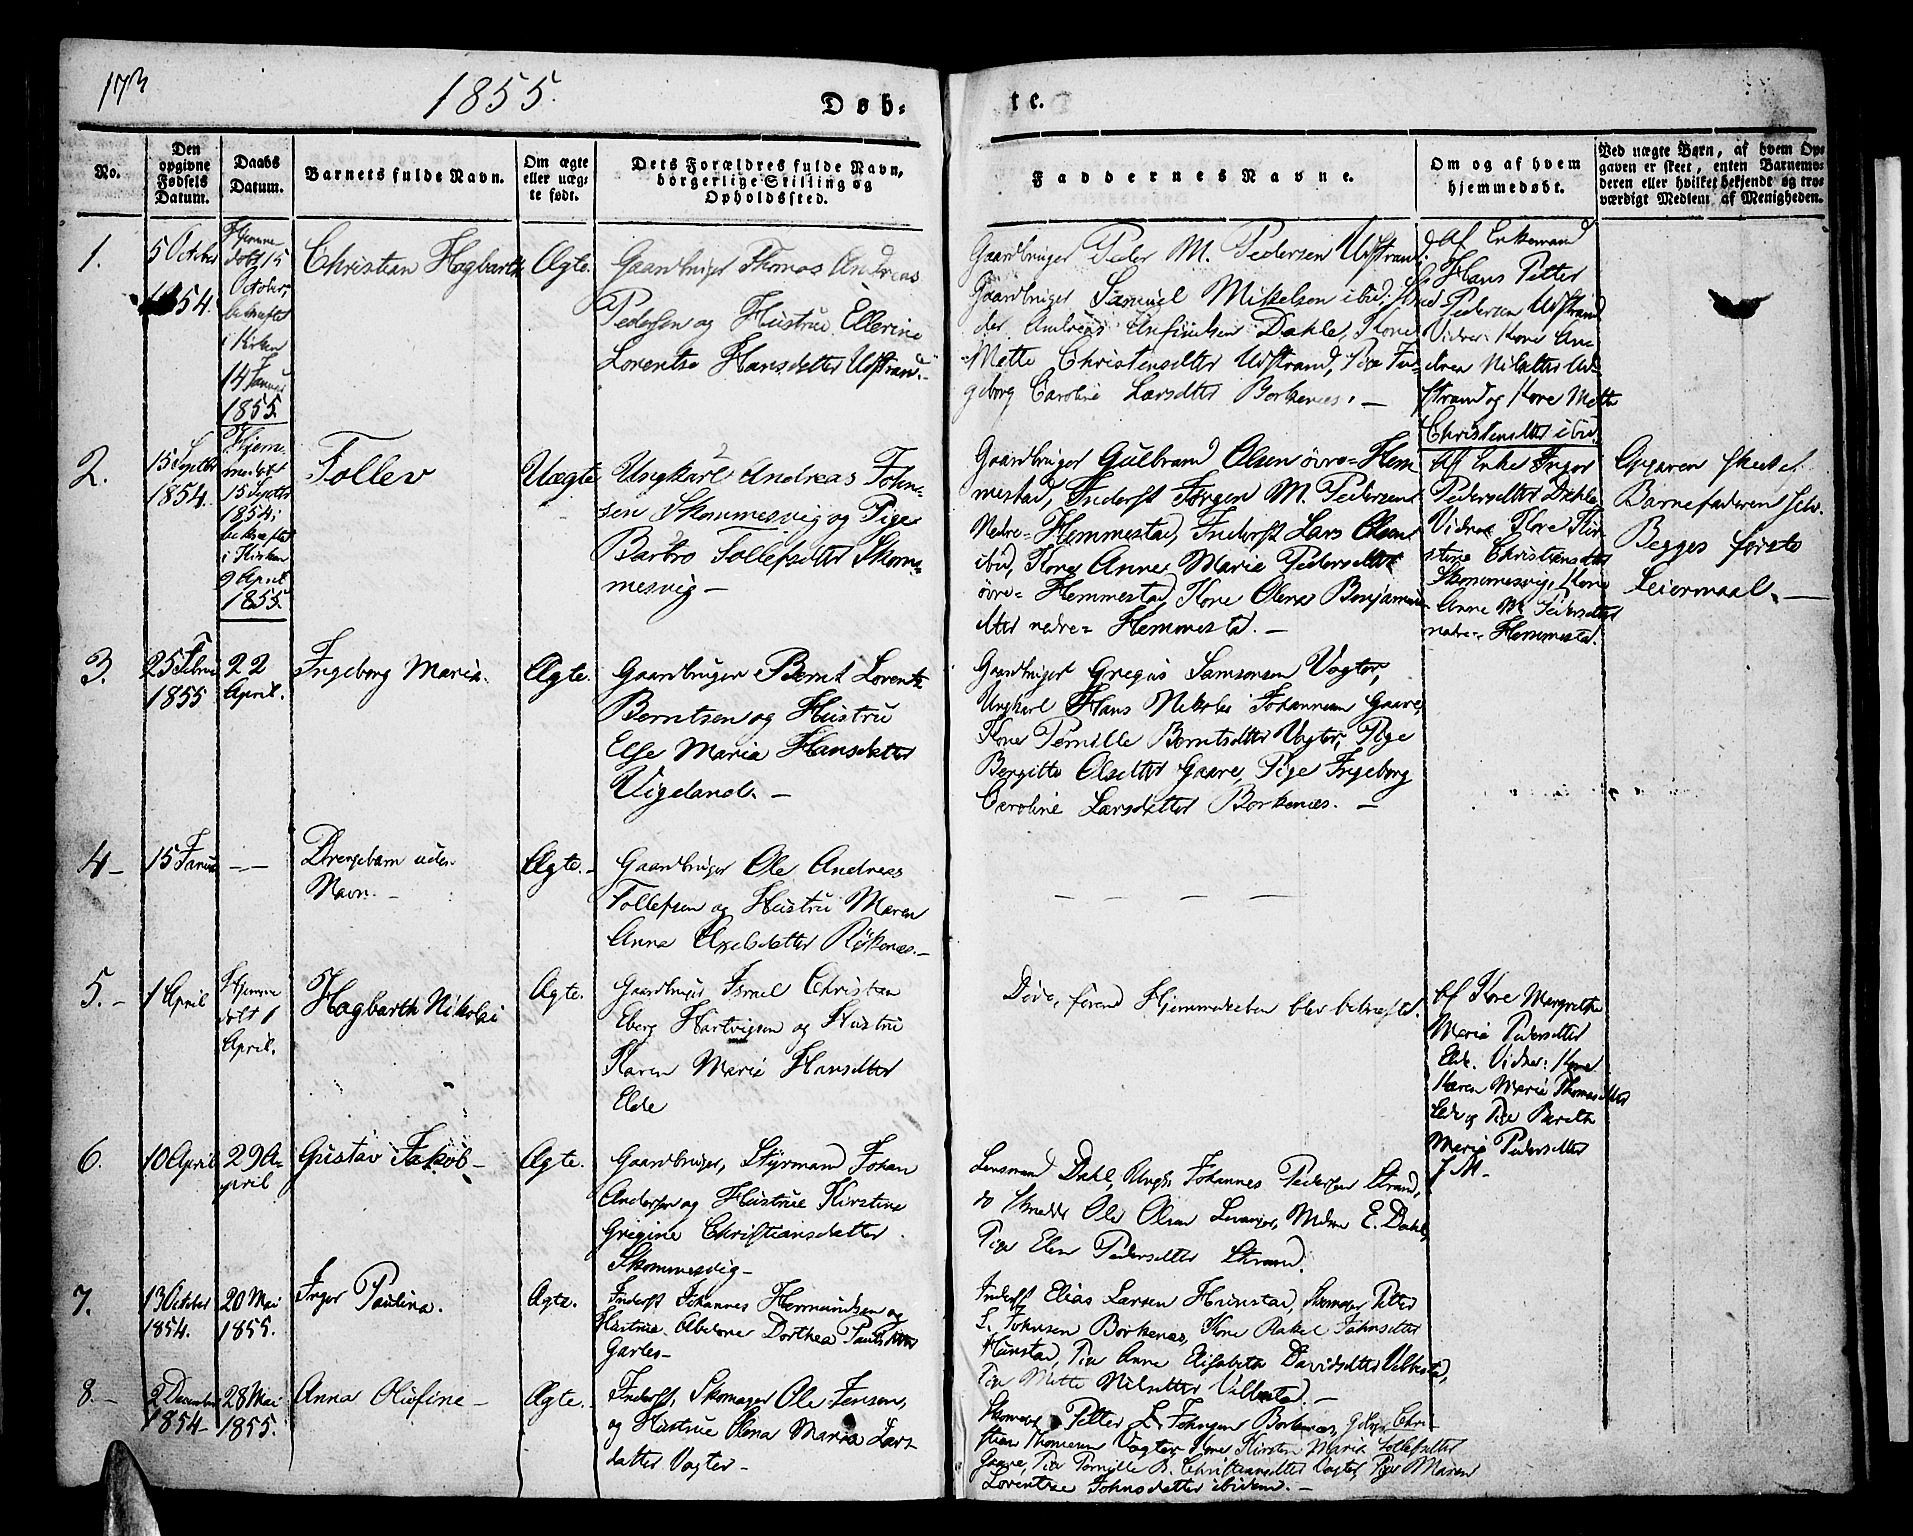 173
1855.
Døb-
te.
No.
Den
opgivne
Fødsels
Datum.
Daabs
Datum.
Barnets fulde Navn.
Om ægte
eller uæg-
te født.
Dets Forældres fulde Navn,
borgerlige Stilling og
Opholdssted.
Faddernes Navne.
Om og af hvem
hjemmedøbt.
Ved uægte Børn, af hvem Op-
gaven er skeet, enten Barnemo-
deren eller hvilket bekjendt og tro-
værdigt Medlem af Menigheden.
1.
5 October
1854.
Hjemme
døbt 15
October,
bekræftet
i Kirken
14 Januar
1855.
Christian Hagbarth
Ægte.
Gaardbruger Thomas Andreas
Pedersen og Hustrue Ellerine
Lorentse Hansdatter Udstrand.-
Gaardbruger Peder M. Pedersen Udstrand,
Gaardbruger Samuel Mikkelsen ibid:
Andreas Dahle, Kone
Mette Christensdtter Udstrand, Pige In-
geborg Caroline Larsdtter Borkenes. -
Af Enkemand
Hans Petter
Pedersen Udstrand
Vidner: Kone An-
drea Nilsdtter Ud-
strand og Kone Mette
Christensdtter ibid.
2.
15 Septbr
1854.
Hjem-
medøbt
15 Septbr
1854;
bekræftet
i Kirken
9 April
1855.
Tollev
Uægte
Ungkarl Andreas John-
sen Skommesvig og Pige
Barbro Tollefsdtter Skom-
mesvig -
Gaardbruger Gulbrand Olsen øvre= Hem-
mestad, Inderst Jørgen M. Pedersen
Nedre= Hemmestad, Inderst Lars Olsen
ibid, Kone Anne Marie Pedersdtter
øvre= Hemmestad, Kone Olena Benjamin-
dtter nedre= Hemmestad. -
Af Enke Inger
Pedersdtter Dahle.
Vidner Kone Kir-
stine Christiansdtter
Skommesvig, Kone
Anne M. Pedersdtter
nedre= Hemmestad.
Opgaven skeet af
Barnefaderen selv.
Begges første
Leiermaal. -
3.
25 Februar
1855
22
April.
Ingeborg Maria.
Ægte.
Gaardbruger Bernt Lorents
Berntsen og Hustru
Else Maria Hansdatter
Vigeland. -
Gaardbruger Gregus Samsonsen Vogter,
Ungkarl Hans Nikolai Johannsen Gaare,
Kone Pernille Berntsdtter Vogter, Pige
Bergitte Olsdtter Gaare, Pige Ingeborg
Caroline Larsdatter Borkenes. -
4-
15 Januar
- -
Drengebarn uden
Navn. -
Ægte. -
Gaardbruger Ole Andreas
Tollefsen og Hustru Maren
Anna Axelsdatter Røkenes.-
- - - -
5. -
1 April
Hjemme
døbt 1
April.
Hagbarth Nikolai
Ægte.
Gaardbruger Israel Christian
Eberg Hartvigsen og Hustru
Karen Marie Hansdtter
Elde
Døde, førend Hjemmedaaben blev bekræftet.
Af Kone Margrethe
Maria Pedersdtter
Elde. Vidner: Kone
Karen Marie Thomasdtter
Elde og Pige Beretha
Marie Pedersdtter
J. M-
6.
10 April
29 A-
pril
Gustav Jakob -
Ægte.
Gaardbruger, Styrmand Johan
Andersen og Hustrue Kirstine
Grigine Christiansdatter
Skommesvig -
Lensmand Dahl, Ungk. Johannes Pedersen Strand,
do Skrædder Ole Olsen Levanger, Mdme E. Dahl,
Pige Elen Pedersdtter Strand.
7.
13 October
1854.
20 Mai
1855.
Inger Paulina.
Ægte.
Inderst Johannes Hermundsen og
Hustrue Abelone Dorthea Paulsdtter
Garles-
Inderst Elias Larsen Hunstad, Skomager Petter
L. Johnsen Borkenes, Kone Rakel Johnsdtter
Hunstad, Pige Anne Elisabeth Davidsdtter Vikestad,
Pige Mette Nilsdtter Vikestad. -
8. -
2 December
1854-
28 Mai
1855.
Anna Olufine -
Ægte. -
Inderst, Skomager Ole Jensen,
og Hustrue Olena Maria Lars-
datter Vogter -
Skomager Petter L. Johnsen Borkenes, Gdbgr. Chri-
stian Thomesen Vogter, Kone Kirsten Maria Tollefsdtter
Gaare, Pige Pernille B. Christiansdtter Vogter, Pige Maren
Lorentse Johnsdatter ibidem. -